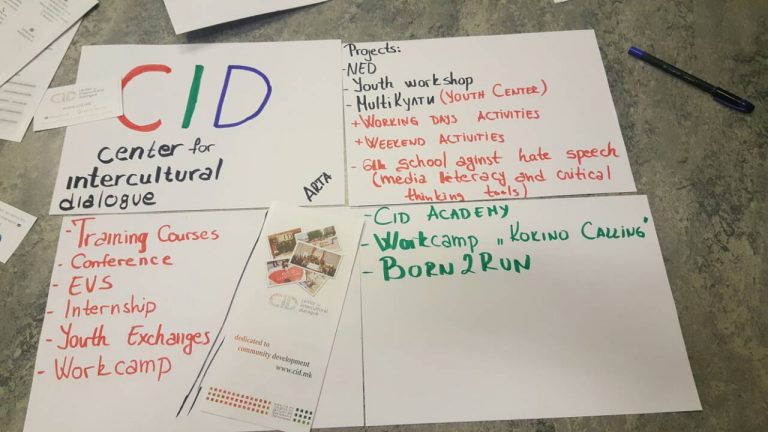 CID
center for
intercultural
dialogue
ARTA
CID
center for
intercultural
dialogue
Projects:
-NED
-Youth workshop
-MultiКулти (Youth Center)
+Working days activities
+Weekend activities
- 6th school aginst hate speech
(media leteracy and critical
thinking tools)
- Training Courses
- Conference
- EVS
- Internship
- Youth Exchanges
- Workcamp
CID
center for
intercultural
dialogue
dedicated to
community development
www.cid.mk
- CID Academy
- Workcamp „Kokino Calling"
- Born2Run